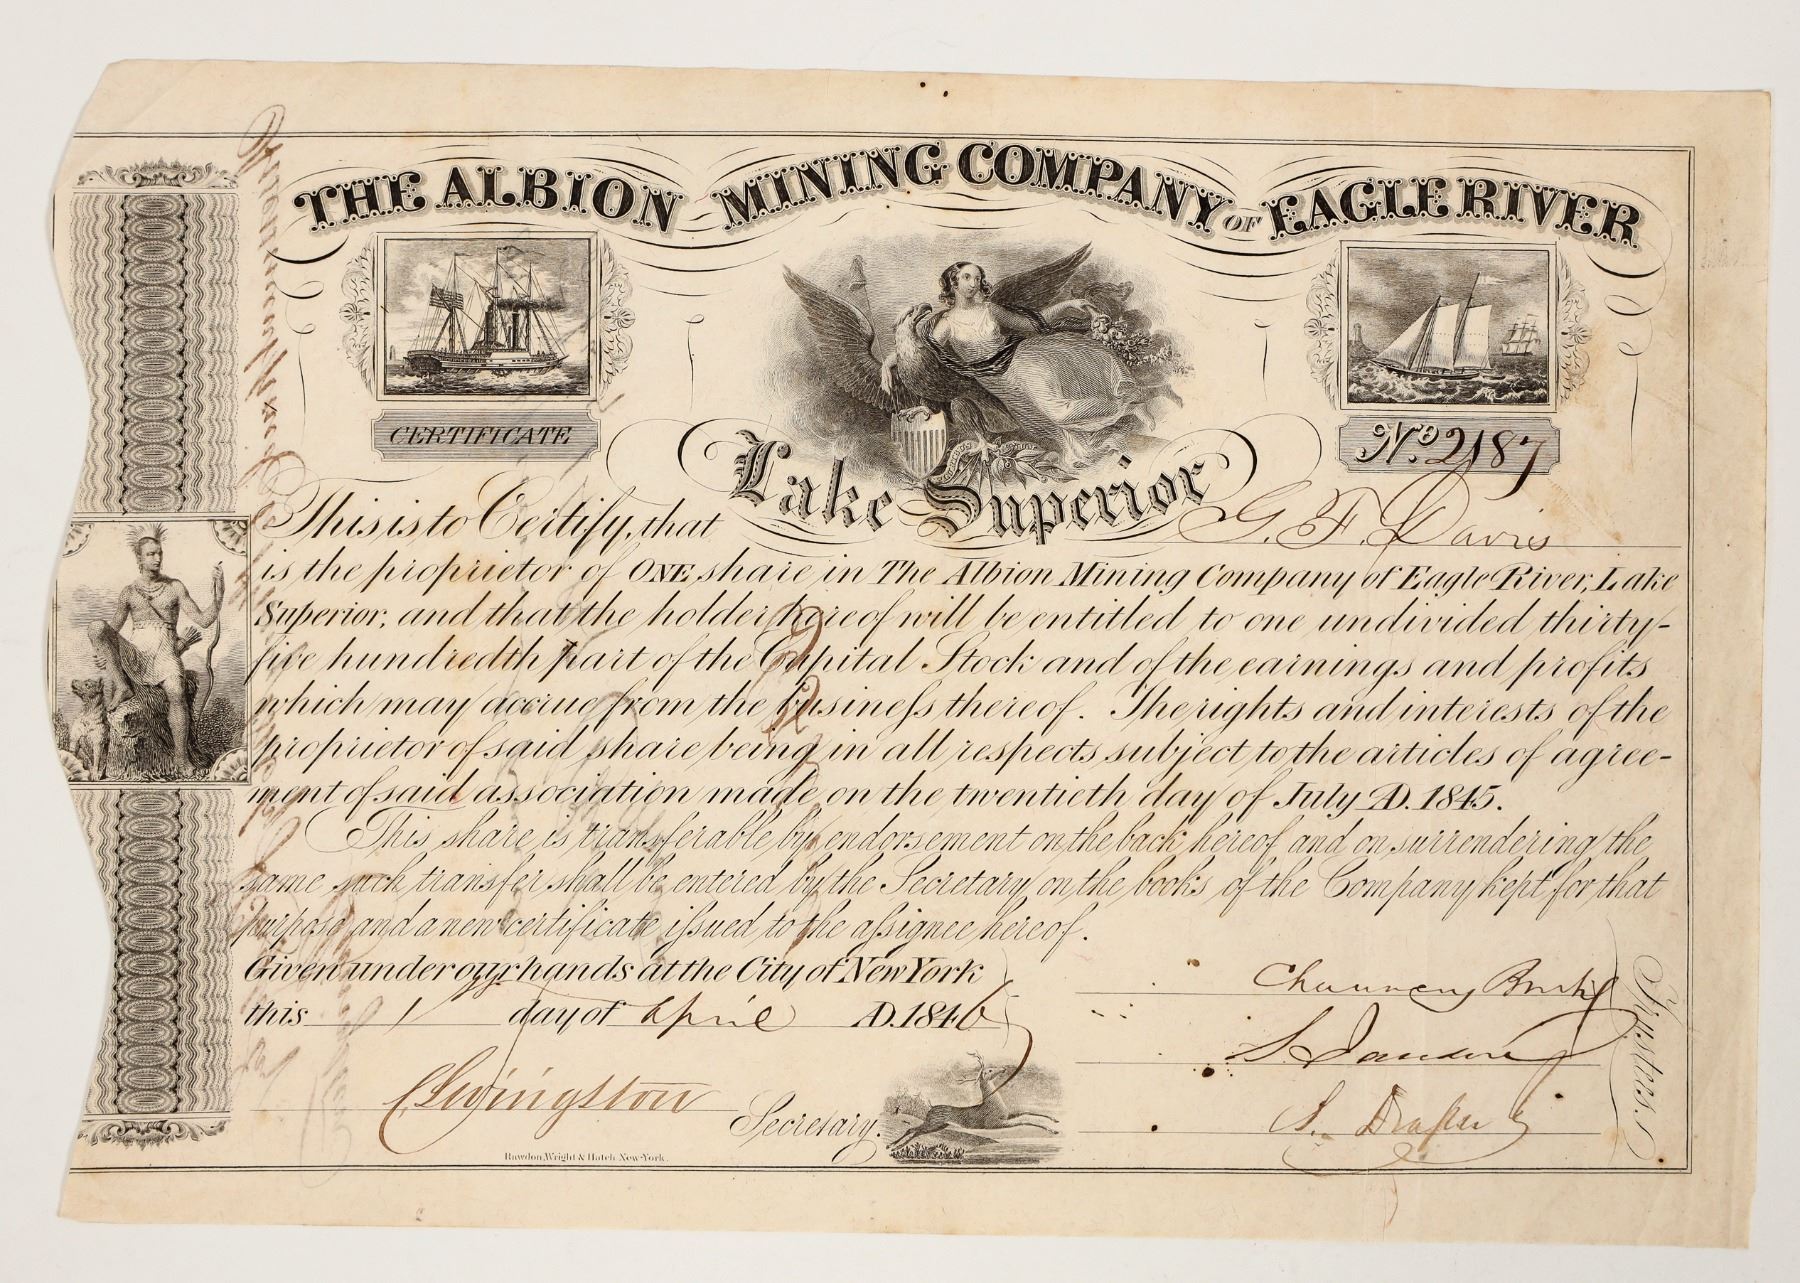 THE ALBION MINING COMPANY OF EAGLE RIVER
CERTIFICATE
No. 2187
Lake Superior
This is to Certify, that G. F. Davis
is the proprietor of ONE share in The Albion Mining Company of Eagle River, Lake
Superior, and that the holder hereof will be entitled to one undivided thirty-
five hundredth part of the Capital Stock and of the earnings and profits
which may accrue from the business thereof. The rights and interests of the
proprietor of said share being in all respects subject to the articles of agree-
ment of said association made on the twentieth day of July AD. 1845.
This share is transferable by endorsement on the back hereof and on surrendering the
same such transfer shall be entered by the Secretary on the books of the Company kept for that
purpose and a new certificate issued to the assignee hereof.
Given under our hands at the City of New York
this 1 day of April AD. 1846
C Livingston Secretary.
Chauncey
S. Draper
Trustees.
Rawdon, Wright & Hatch New-York.